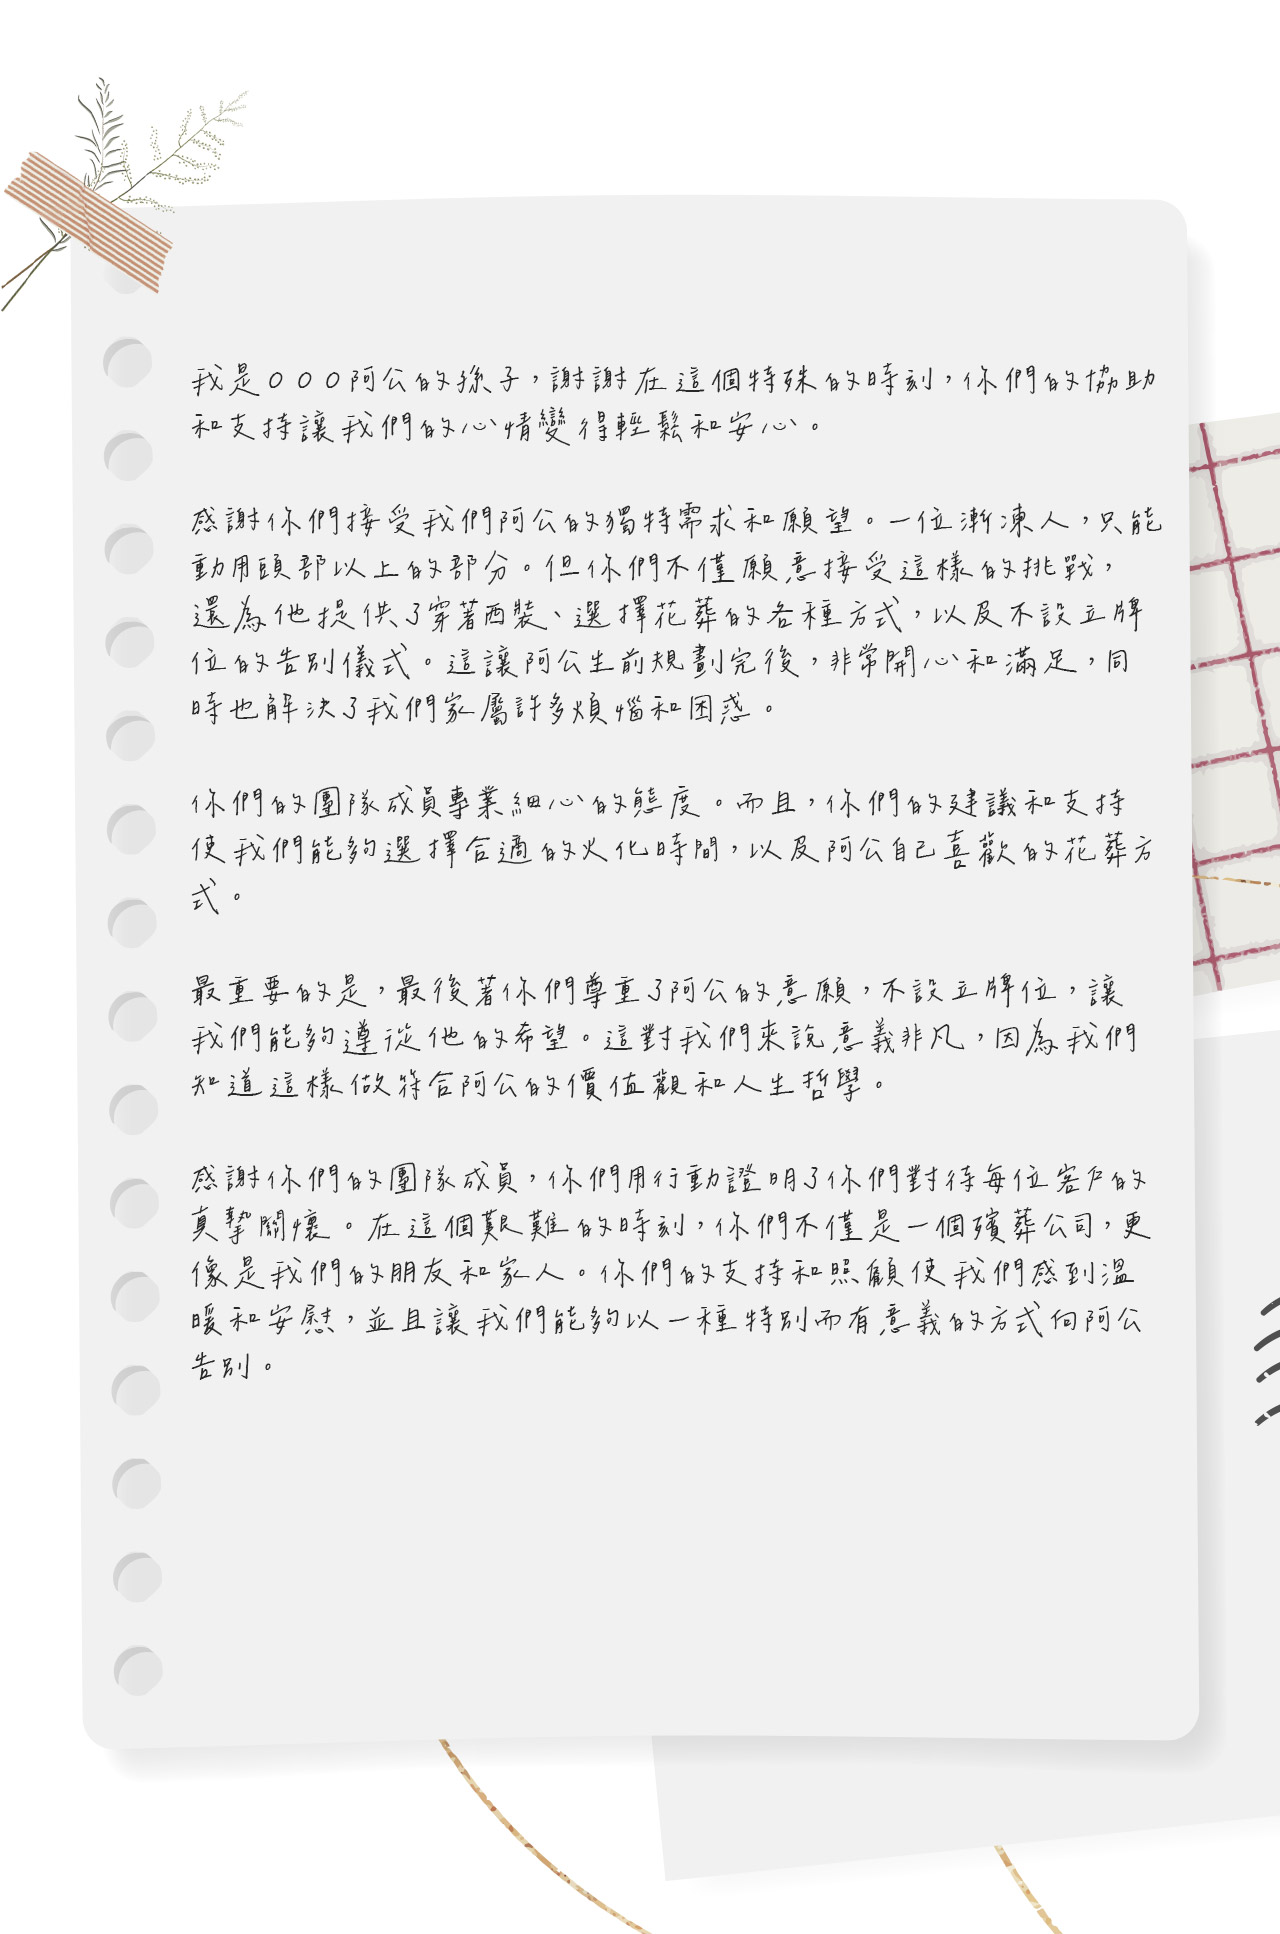 我是OOO阿公的孫子，謝謝在這個特殊的時刻，你們的協助
和支持讓我們的心情變得輕鬆和安心。
感謝你們接受我們阿公的獨特需求和願望。一位漸凍人，只能
動用頭部以上的部分。但你們不僅願意接受這樣的挑戰，
還為他提供了穿著西裝、選擇花葬的各種方式，以及不設立牌
位的告別儀式。這讓阿公生前規劃完後，非常開心和滿足，同
時也解決了我們家屬許多煩惱和困惑。
你們的團隊成員專業細心的態度。而且，你們的建議和支持
使我們能夠選擇合適的火化時間，以及阿公自己喜歡的花葬方
式。
最重要的是，最後著你們尊重了阿公的意願，不設立牌位，讓
我們能夠遵從他的希望。這對我們來說意義非凡，因為我們
知道這樣做符合阿公的價值觀和人生哲學。
感謝你們的團隊成員，你們用行動證明了你們對待每位客戶的
真摯關懷。在這個艱難的時刻，你們不僅是一個殯葬公司，更
像是我們的朋友和家人。你們的支持和照顧使我們感到溫
暖和安慰，並且讓我們能夠以一種特別而有意義的方式向阿公
告別。